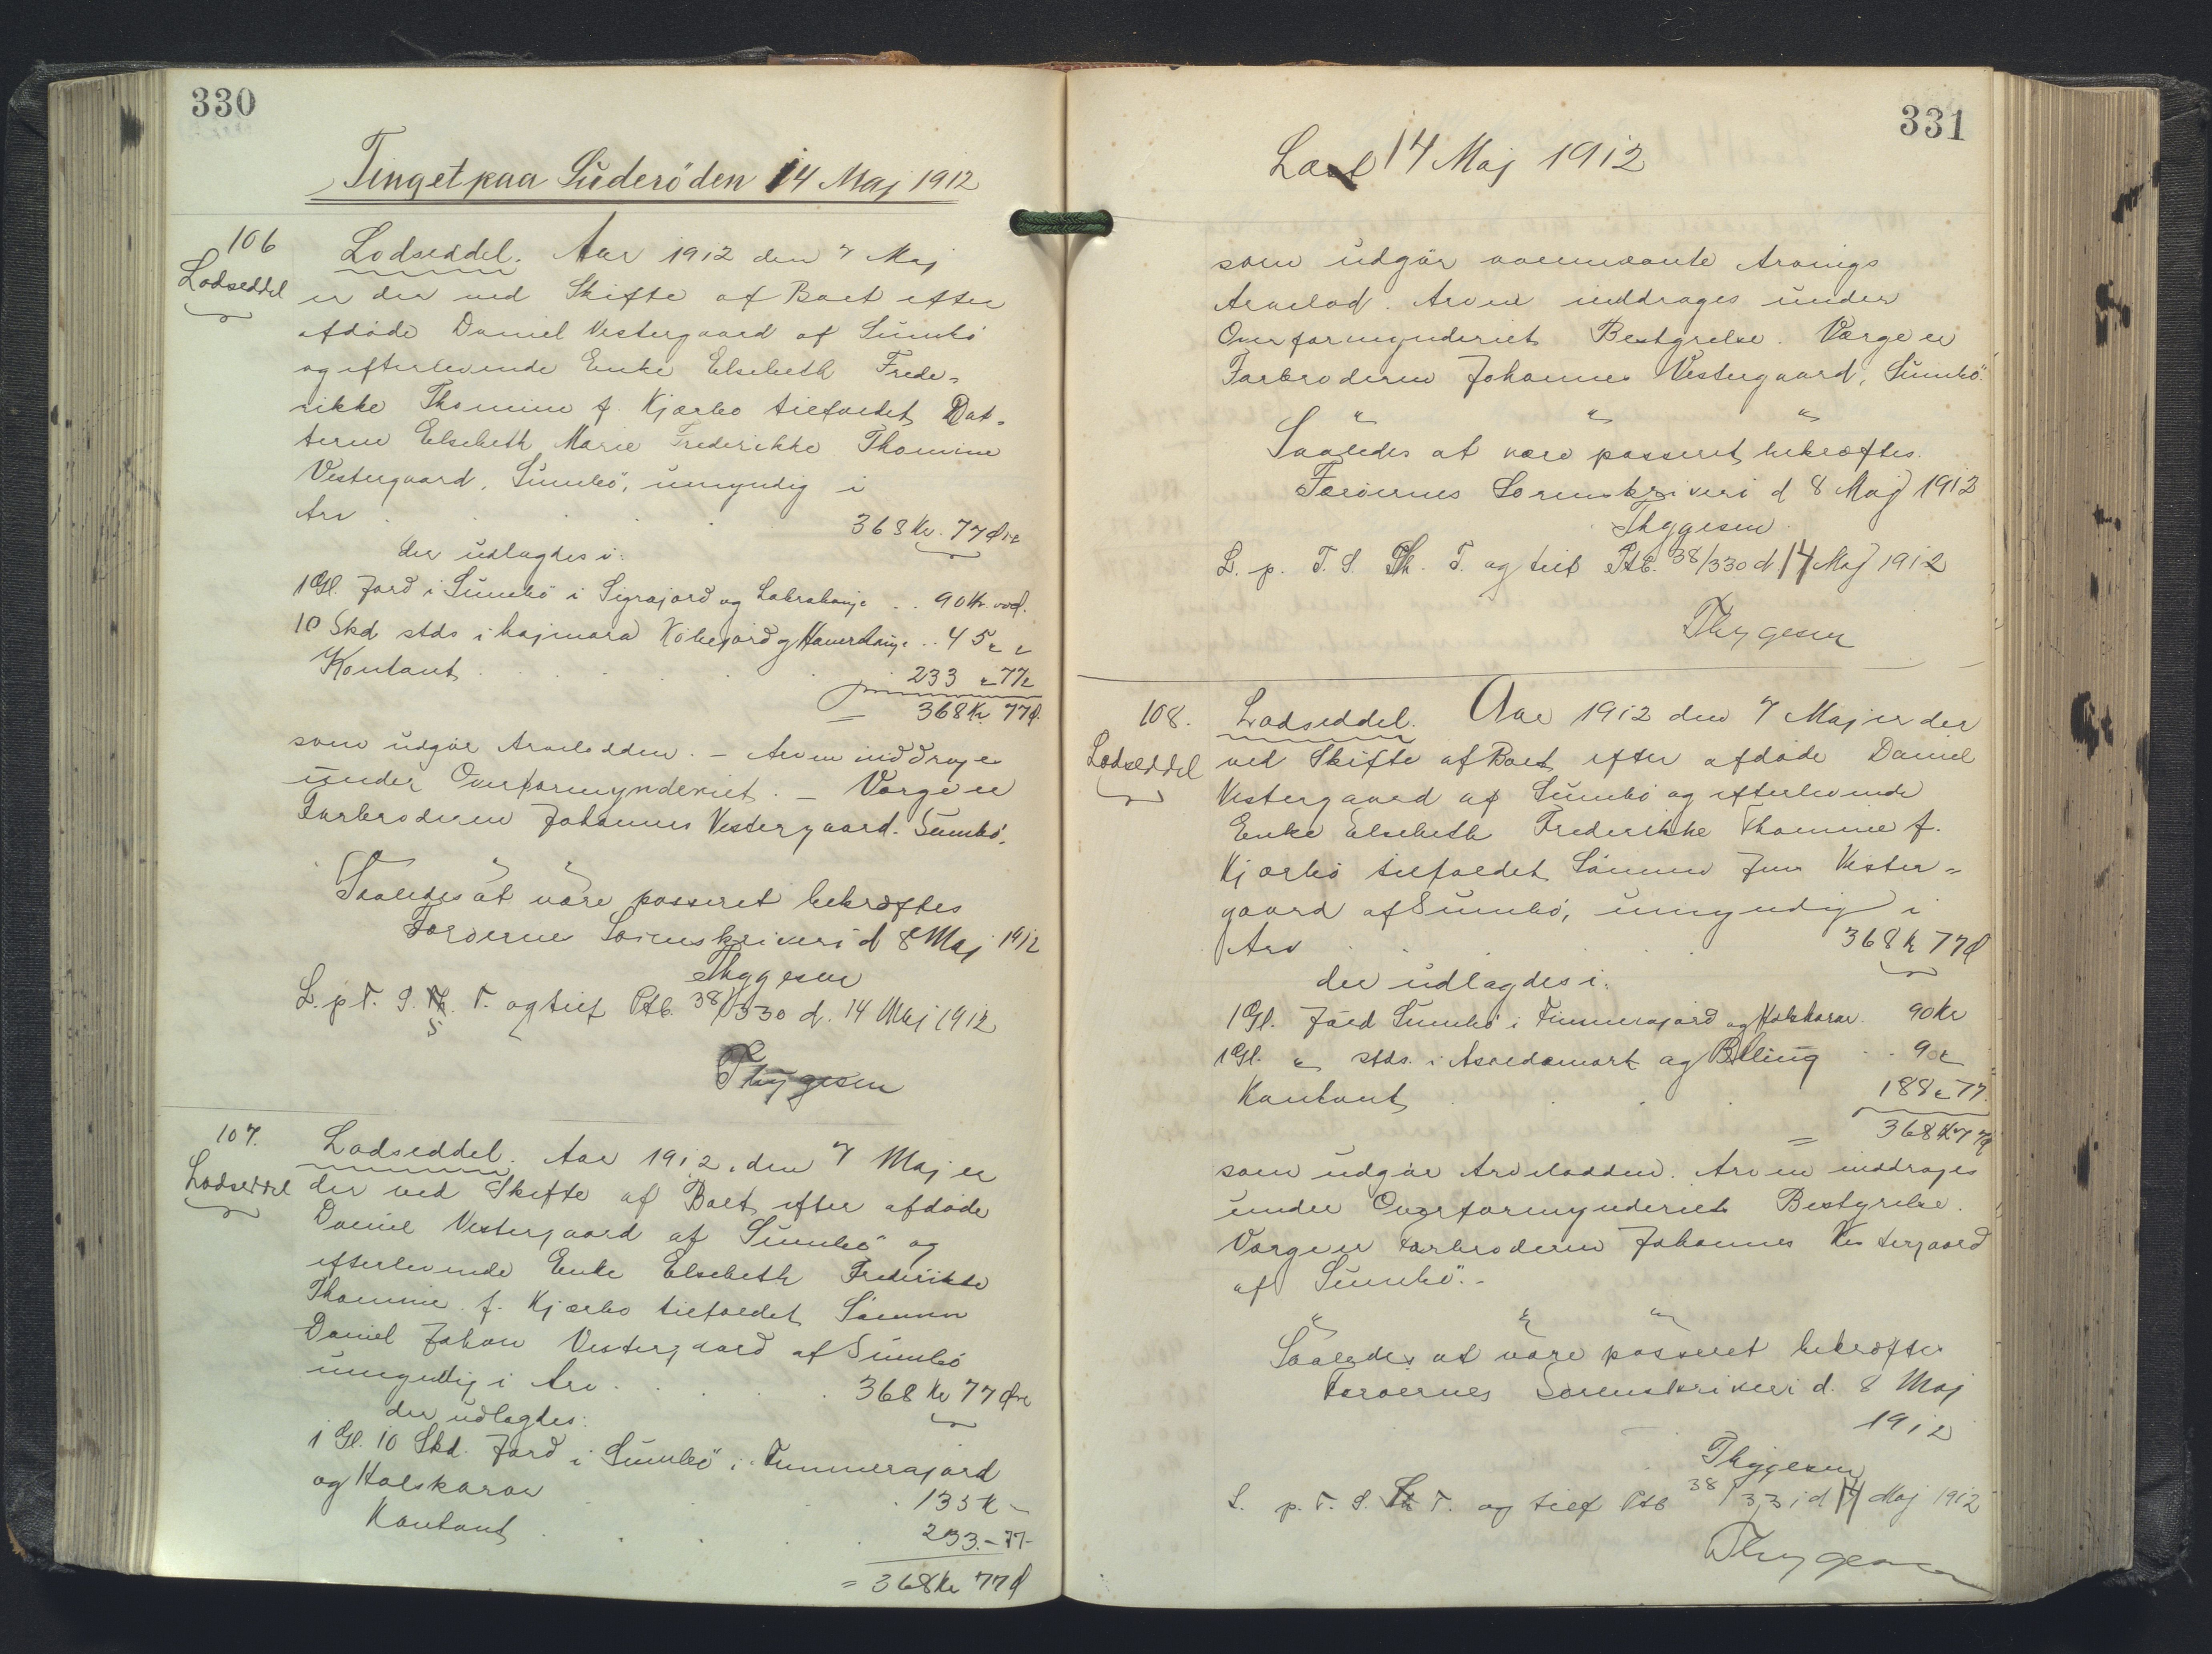 330
Tinget paa Suderö den 14 Maj 1912
106
Lodseddel
Lodseddel. Aar 1912 den 7 Maj
er der ved Skifte af Boet efter
afdöde Daniel Vestergaard af Sumbö
og efterlevende Enke Elsebeth Frede-
rikke Thomine f. Kjærbo tilfaldet Dat-
teren Elsebeth Marie Frederikke Thomine
Vestergaard, Sumbö, umyndig i
Arv . . . 368 Kr. 77 Øre
der udlagdes i:
1 Gl. Jord i Sumbö i Signajord og . . 90 Kr.
10 Skd stds i og . . 45 " "
Kontant . . . 233 " 77 "
= 368 Kr 77 Ø.
som udgör Arvelodden. – Arven inddrages
under Overformynderiet. – Værge er
Farbroderen Johannes Vestergaard. Sumbö.
Saaledes at være passeret bekræftes
Færöernes Sorenskriveri d 8 Maj 1912
Thygesen
L. p T. S. T. og tilf Ptb. 38/330 d. 14 Maj 1912
Thygesen
107.
Lodseddel
Lodseddel. Aar 1912. den 7 Maj er
der ved Skifte af Boet efter afdöde
Daniel Vestergaard af Sumbö og
efterlevende Enke Elsebeth Frederikke
Thomine f. Kjærbo tilfaldet Sönnen
Daniel Johan Vestergaard af Sumbö
umyndig i Arv . . . 368 Kr 77 Øre
der udlagdes:
1 Gl. 10 Skd. Jord i Sumbö i Timmerajord
og Holskarar . . 135 K –
Kontant . . . 233. – 77 –
= 368 Kr 77 Ø
331
14 Maj 1912
som udgör ovennævnte Arvings
Arvelod. Arven inddrages under
Overformynderiets Bestyrelse. Værge er
Farbroderen Johannes Vestergaard, Sumbö.
" " "
Saaledes at være passeret bekræftes.
Færöernes Sorenskriveri d 8 Maj 1912
Thygesen.
L. p. T. S. Th. T. og tilf Ptb. 38/330 d 14 Maj 1912
Thygesen
108.
Lodseddel
Lodseddel. Aar 1912 den 7 Maj er der
ved Skifte af Boet efter afdöde Daniel
Vestergaard af Sumbö og efterlevende
Enke Elsebeth Frederikke Thomine f.
Kjærbö tilfaldet Sönnen Jens Vester-
gaard af Sumbö, umyndig i
Arv . . . 368 K 77 Ø
der udlagdes i:
1 Gl. Jord Sumbö i Timmerajord og Holskarar. 90 Kr
1 Gl. " stds. i og BØling . . 90 "
Kontant . . . 188 " 77.
= 368 Kr 77 Ø
som udgör Arvelodden. Arven inddrages
under Overformynderiets Bestyrelse.
Værge er Farbroderen Johannes Vestergaard
af Sumbö. -
" " "
Saaledes at være passeret bekræftes
Færöernes Sorenskriveri d. 8 Maj
1912
Thygesen
L. p. T. S. T. og tilf Ptb 38/331 d 14 Maj 1912
Thygesen